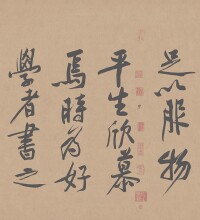 足以服物
平生欣慕
焉時為好
學者書之